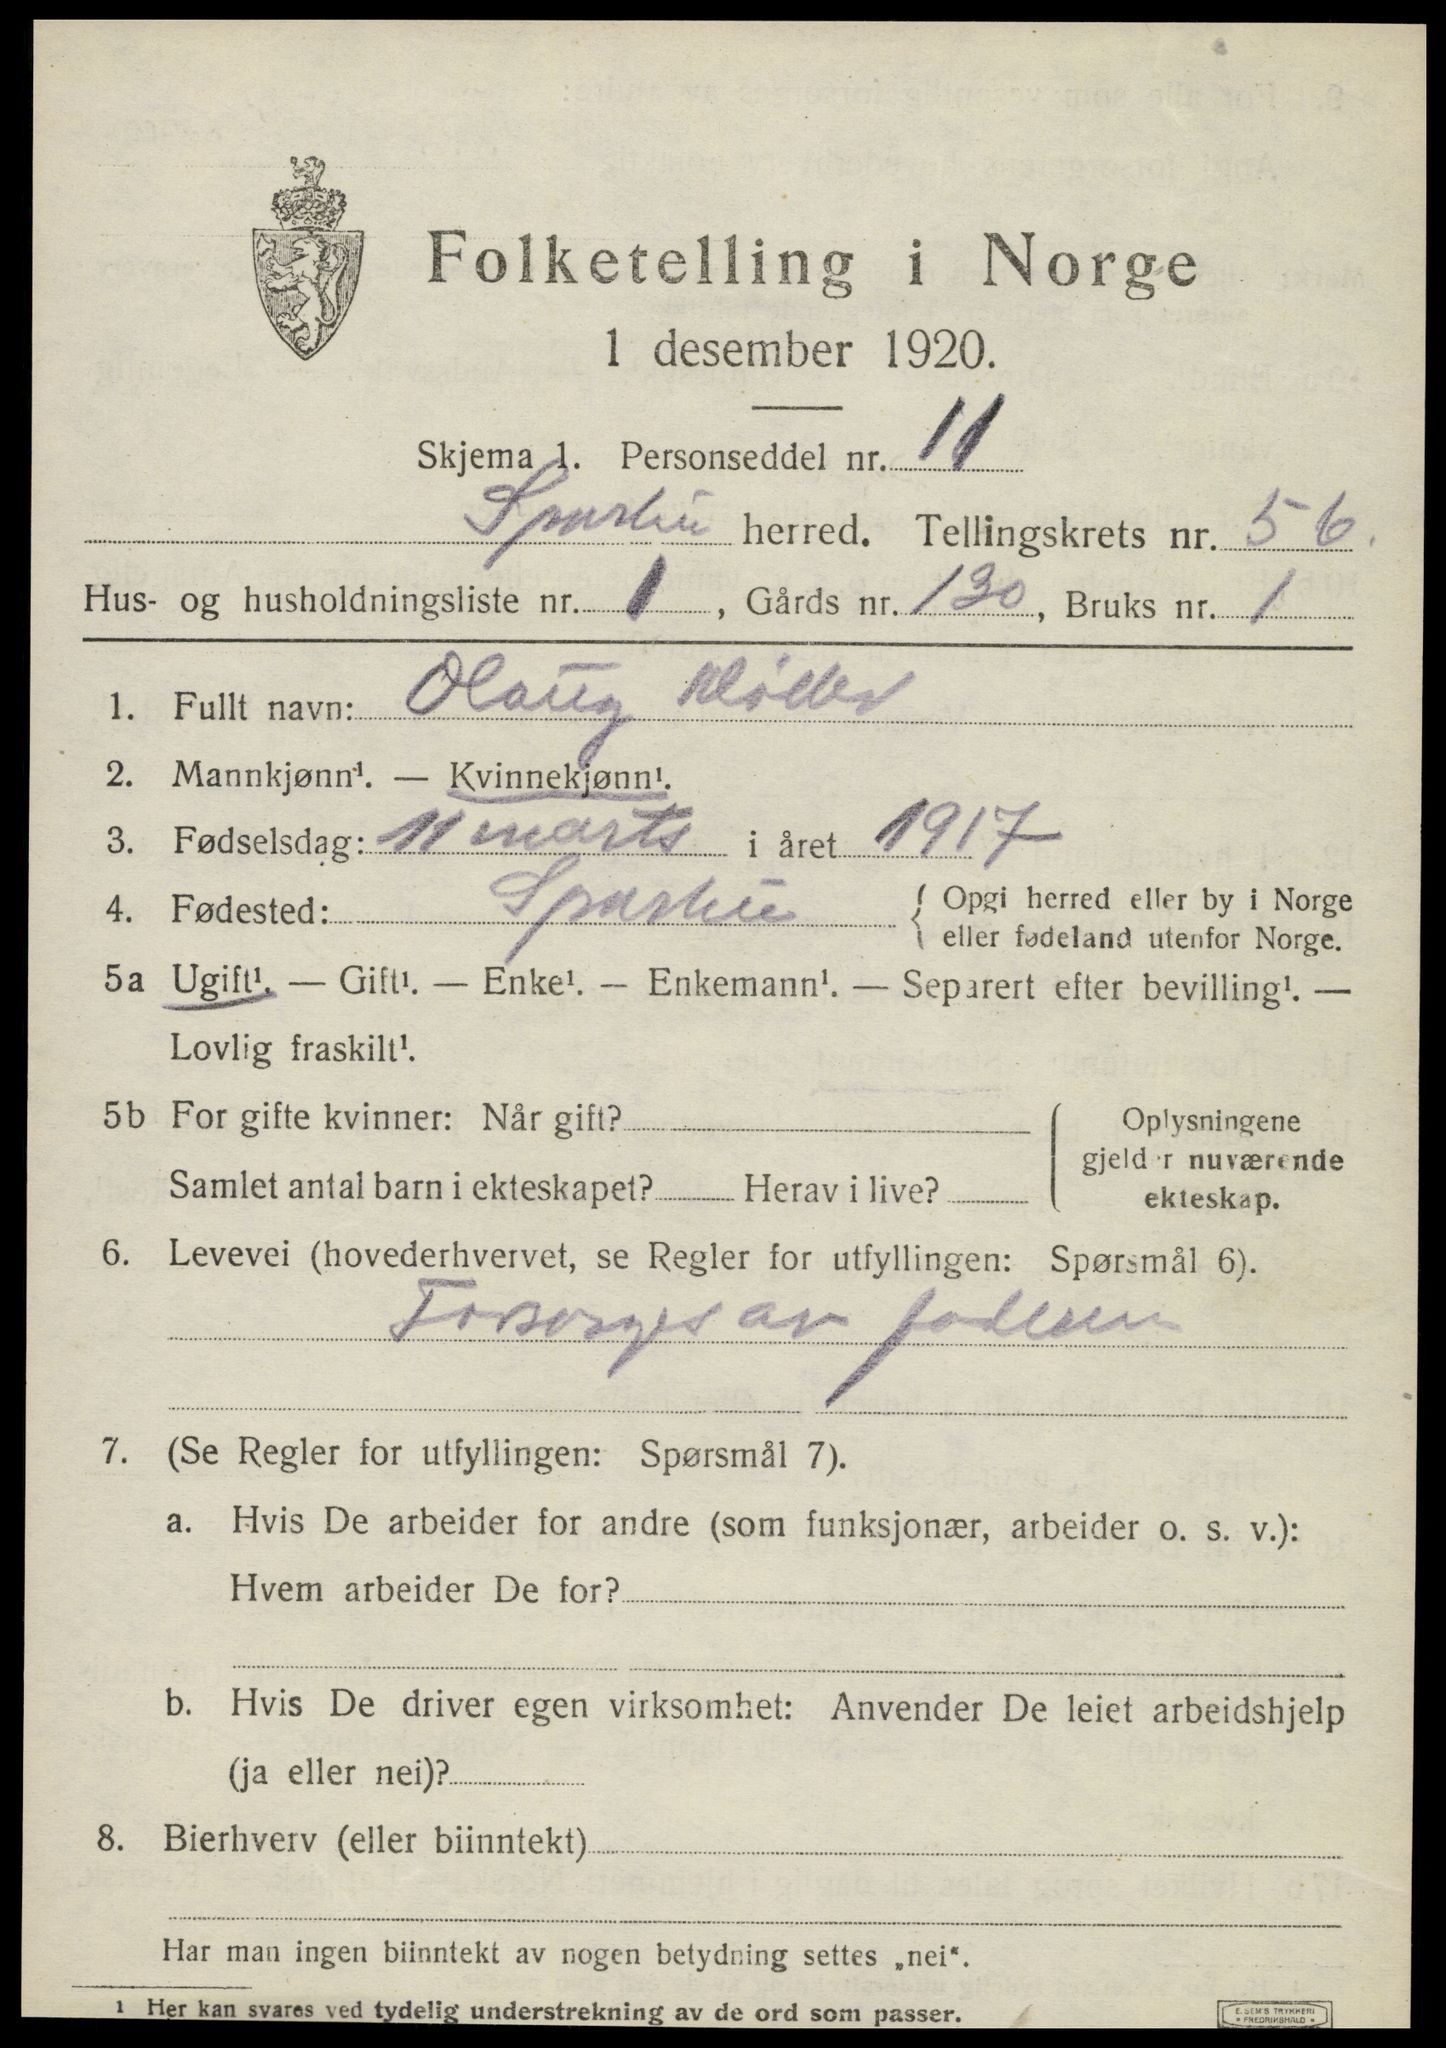 Folketelling i Norge
1 desember 1920.
Skjema 1. Personseddel nr. 11
Sparbu herred. Tellingskrets nr. 56.
Hus- og husholdningsliste nr. 1, Gårds nr. 130, Bruks nr. 1
1. Fullt navn: Olaug
2. Mannkjønn¹. — Kvinnekjønn¹.
3. Fødselsdag: 11 marts i året 1917
4. Fødested: Sparbu { Opgi herred eller by i Norge
eller fødeland utenfor Norge.
5a Ugift¹. — Gift¹. — Enke¹. — Enkemann¹. — Separert efter bevilling¹. —
Lovlig fraskilt¹.
5b For gifte kvinner: Når gift?
Samlet antal barn i ekteskapet? Herav i live?
Oplysningene
gjelder nuværende
ekteskap.
6. Levevei (hovederhvervet, se Regler for utfyllingen: Spørsmål 6).
Forsorges av faderen
7. (Se Regler for utfyllingen: Spørsmål 7).
a. Hvis De arbeider for andre (som funksjonær, arbeider o. s. v.):
Hvem arbeider De for?
b. Hvis De driver egen virksomhet: Anvender De leiet arbeidshjelp
(ja eller nei)?
8. Bierhverv (eller biinntekt)
Har man ingen biinntekt av nogen betydning settes „nei“.
1 Her kan svares ved tydelig understrekning av de ord som passer.
E. SEM'S TRYKKERI
• FREDRIKSHALD •